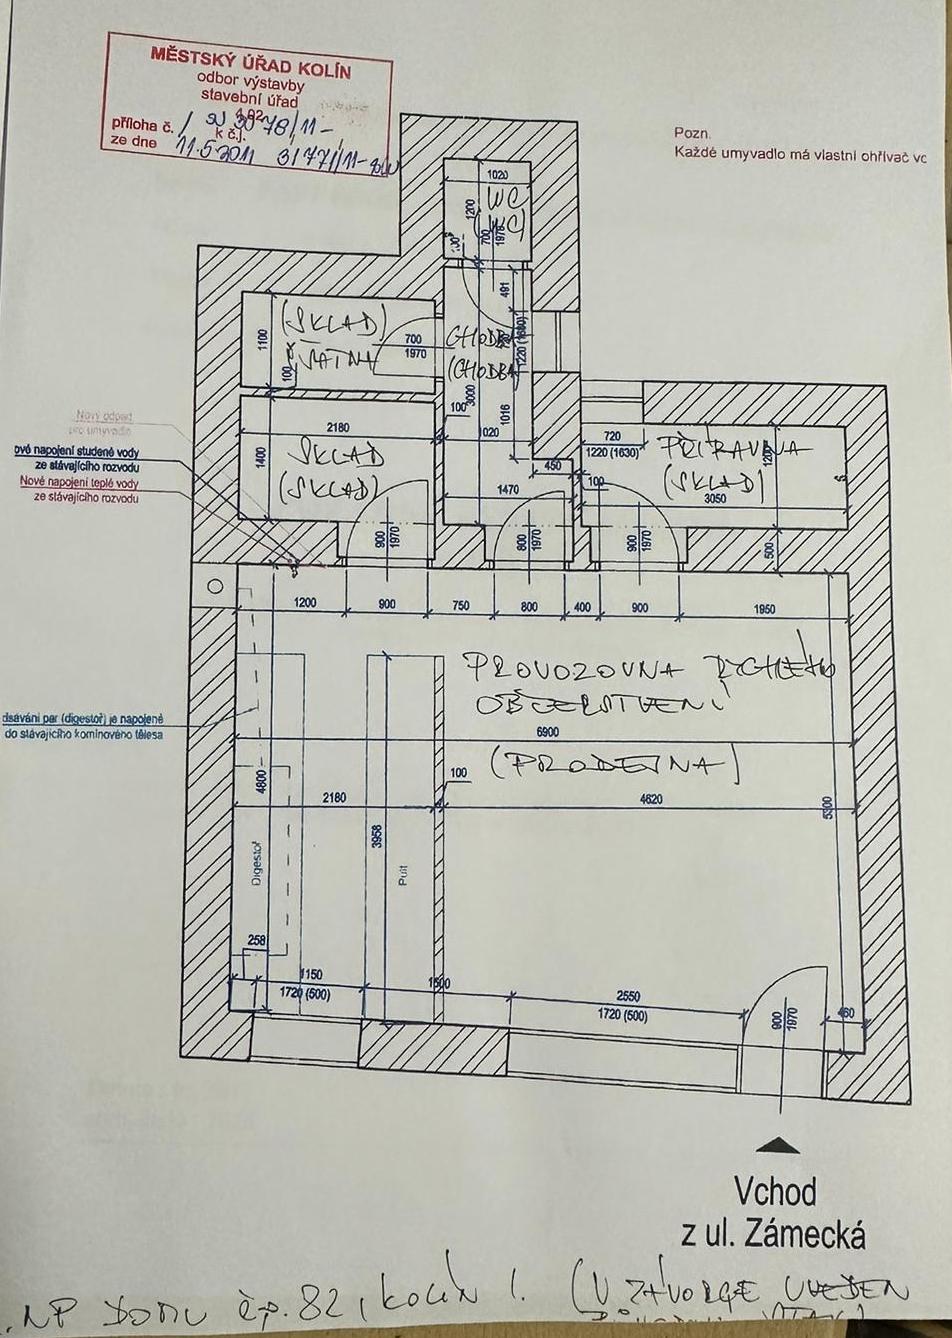 MĚSTSKÝ ÚŘAD KOLÍN
odbor výstavby
stavební úřad
příloha č. / SÚ 3078/11-
k č.j.
ze dne 11.5.2011 3177/11-
Pozn.
Každé umyvadlo má vlastní ohřívač vo
1020
WC
(WC)
1200
700
1970
100
491
(SKLAD)
ŠATNA
1100
100
700
1970
CHODBA
(CHODBA
1220 (1630)
3000
100
1016
1020
2180
1400
SKLAD
(SKLAD)
450
1470
100
720
1220 (1630)
PŘÍPRAVNA
(SKLAD)
1200
3050
S
Nový odpad
pro umyvadlo
ové napojení studené vody
ze stávajícího rozvodu
Nové napojení teplé vody
ze stávajícího rozvodu
900
1970
800
1970
900
1970
500
1200
900
750
800
400
900
1950
PROVOZOVNA RYCHLÉHO
OBČERSTVENÍ
(PRODEJNA)
dsávání par (digestoř) je napojeně
do stávajícího komínového tělesa
6900
100
2180
4620
4800
3958
5300
Digestoř
Pult
258
1150
1720 (500)
1500
2550
1720 (500)
900
1970
460
Vchod
z ul. Zámecká
. NP DOMU čp. 82, KOLÍN I. (V ZÁVORCE UVEDEN